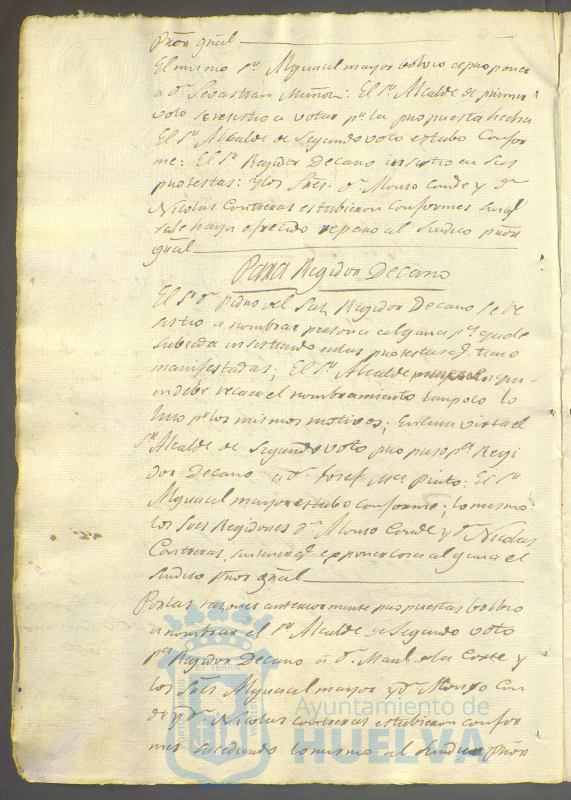 Prôr gñal
El mismo Sr. Alguacil mayor bolvio a proponer
a Dn. Sevastian Muñoz: El Sr. Alcalde de primer
voto se resistio a votar pr. la propuesta hecha
El Sr. Alcalde de Segundo voto estubo Confor
me: El Sr. Regidor Decano insistio en sus
protestas: y los Sres. Dn. Alonso Conde y Dn.
Nicolas Contreras estubieron Conformes sin qe.
se le haya ofrecido reparo al Sindico Prôr
gñal
Para Regidor Decano
El Sr. Dn. Pedro del Saz, Regidor Decano se re
sistio a nombrar persona alguna pa. que le
subceda insistiendo en las protestas qe. tiene
manifestadas; El Sr. Alcalde
in debe recaer el nombramiento tampoco lo
hizo pr. los mismos motivos; En cuya virtud el
Sr. Alcalde de Segundo voto propuso pa. Regi
dor Decano a Dn. Josef Pinto: El Sr.
Alguacil mayor estubo conforme; lo mismo
los Sres Regidores Dn. Alonso Conde y Dn. Nicolas
Contreras, sin tener qe. exponer cosa alguna el
Sindico Prôr gñal
Por las razones anteriormente propuestas bolvio
a nombrar el Sr. Alcalde de Segundo voto
pa. Regidor Decano a Dn. Manl. de la Corte y
los Sres Alguacil mayor y Dn. Alonso Con
de y Dn. Nicolas Contreras estubieron confor
mes sucediendo lo mismo al Sindico Prôr
Ayuntamiento de
HUELVA